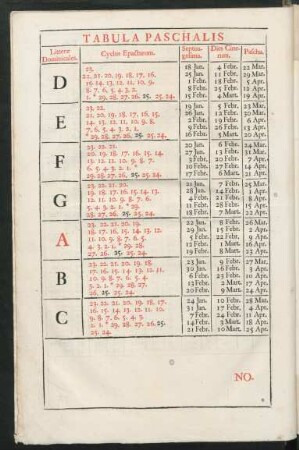 TABULA PASCHALIS
Litteræ Dominicales. Cyclus Epactarum. Septuagesima. Dies Cinerum. Pascha.
D
23. 18 Jan. 4 Febr. 22 Mar.
22. 21. 20. 19. 18. 17. 16. 25 Jan. 11 Febr. 29 Mar.
15. 14. 13. 12. 11. 10. 9. 1 Febr. 18 Febr. 5 Apr.
8. 7. 6. 5. 4. 3. 2. 8 Febr. 25 Febr. 12 Apr.
1. * 29. 28. 27. 26. 25. 25. 24. 15 Febr. 4 Mart. 19 Apr.
E
23. 22. 19 Jan. 5 Febr. 23 Mar.
21. 20. 19. 18. 17. 16. 15. 26 Jan. 12 Febr. 30 Mar.
14. 13. 12. 11. 10. 9. 8. 2 Febr. 19 Febr. 6 Apr.
7. 6. 5. 4. 3. 2. 1. 9 Febr. 26 Febr. 13 Apr.
* 29. 28. 27. 26. 25. 25. 24. 16 Febr. 5 Mart. 20 Apr.
F
23. 22. 21. 20 Jan. 6 Febr. 24 Mar.
20. 19. 18. 17. 16. 15. 14. 27 Jan. 13 Febr. 31 Mar.
13. 12. 11. 10. 9. 8. 7. 3 Febr. 20 Febr. 7 Apr.
6. 5. 4. 3. 2. 1. * 10 Febr. 27 Febr. 14 Apr.
29. 28. 27. 26. 25. 25. 24. 17 Febr. 6 Mart. 21 Apr.
G
23. 22. 21. 20. 21 Jan. 7 Febr. 25 Mar.
19. 18. 17. 16. 15. 14. 13. 28 Jan. 14 Febr. 1 Apr.
12. 11. 10. 9. 8. 7. 6. 4 Febr. 21 Febr. 8 Apr.
5. 4. 3. 2. 1. * 29. 11 Febr. 28 Febr. 15 Apr.
28. 27. 26. 25. 25. 24. 18 Febr. 7 Mart. 22 Apr.
A
23. 22. 21. 20. 19. 22 Jan. 8 Febr. 26 Mar.
18. 17. 16. 15. 14. 13. 12. 29 Jan. 15 Febr. 2 Apr.
11. 10. 9. 8. 7. 6. 5. 5 Febr. 22 Febr. 9 Apr.
4. 3. 2. 1. * 29. 28. 12 Febr. 1 Mart. 16 Apr.
27. 26. 25. 25. 24. 19 Febr. 8 Mart. 23 Apr.
B
23. 22. 21. 20. 19. 18. 23 Jan. 9 Febr. 27 Mar.
17. 16. 15. 14. 13. 12. 11. 30 Jan. 16 Febr. 3 Apr.
10. 9. 8. 7. 6. 5. 4. 6 Febr. 23 Febr. 10 Apr.
3. 2. 1. * 29. 28. 27. 13 Febr. 2 Mart. 17 Apr.
26. 25. 25. 24. 20 Febr. 9 Mart. 24 Apr.
C
23. 22. 21. 20. 19. 18. 17. 24 Jan. 10 Febr. 28 Mar.
16. 15. 14. 13. 12. 11. 10. 31 Jan. 17 Febr. 4 Apr.
9. 8. 7. 6. 5. 4. 3. 7 Febr. 24 Febr. 11 Apr.
2. 1. * 29. 28. 27. 26. 25. 14 Febr. 3 Mart. 18 Apr.
25. 24. 21 Febr. 10 Mart. 25 Apr.
NO.